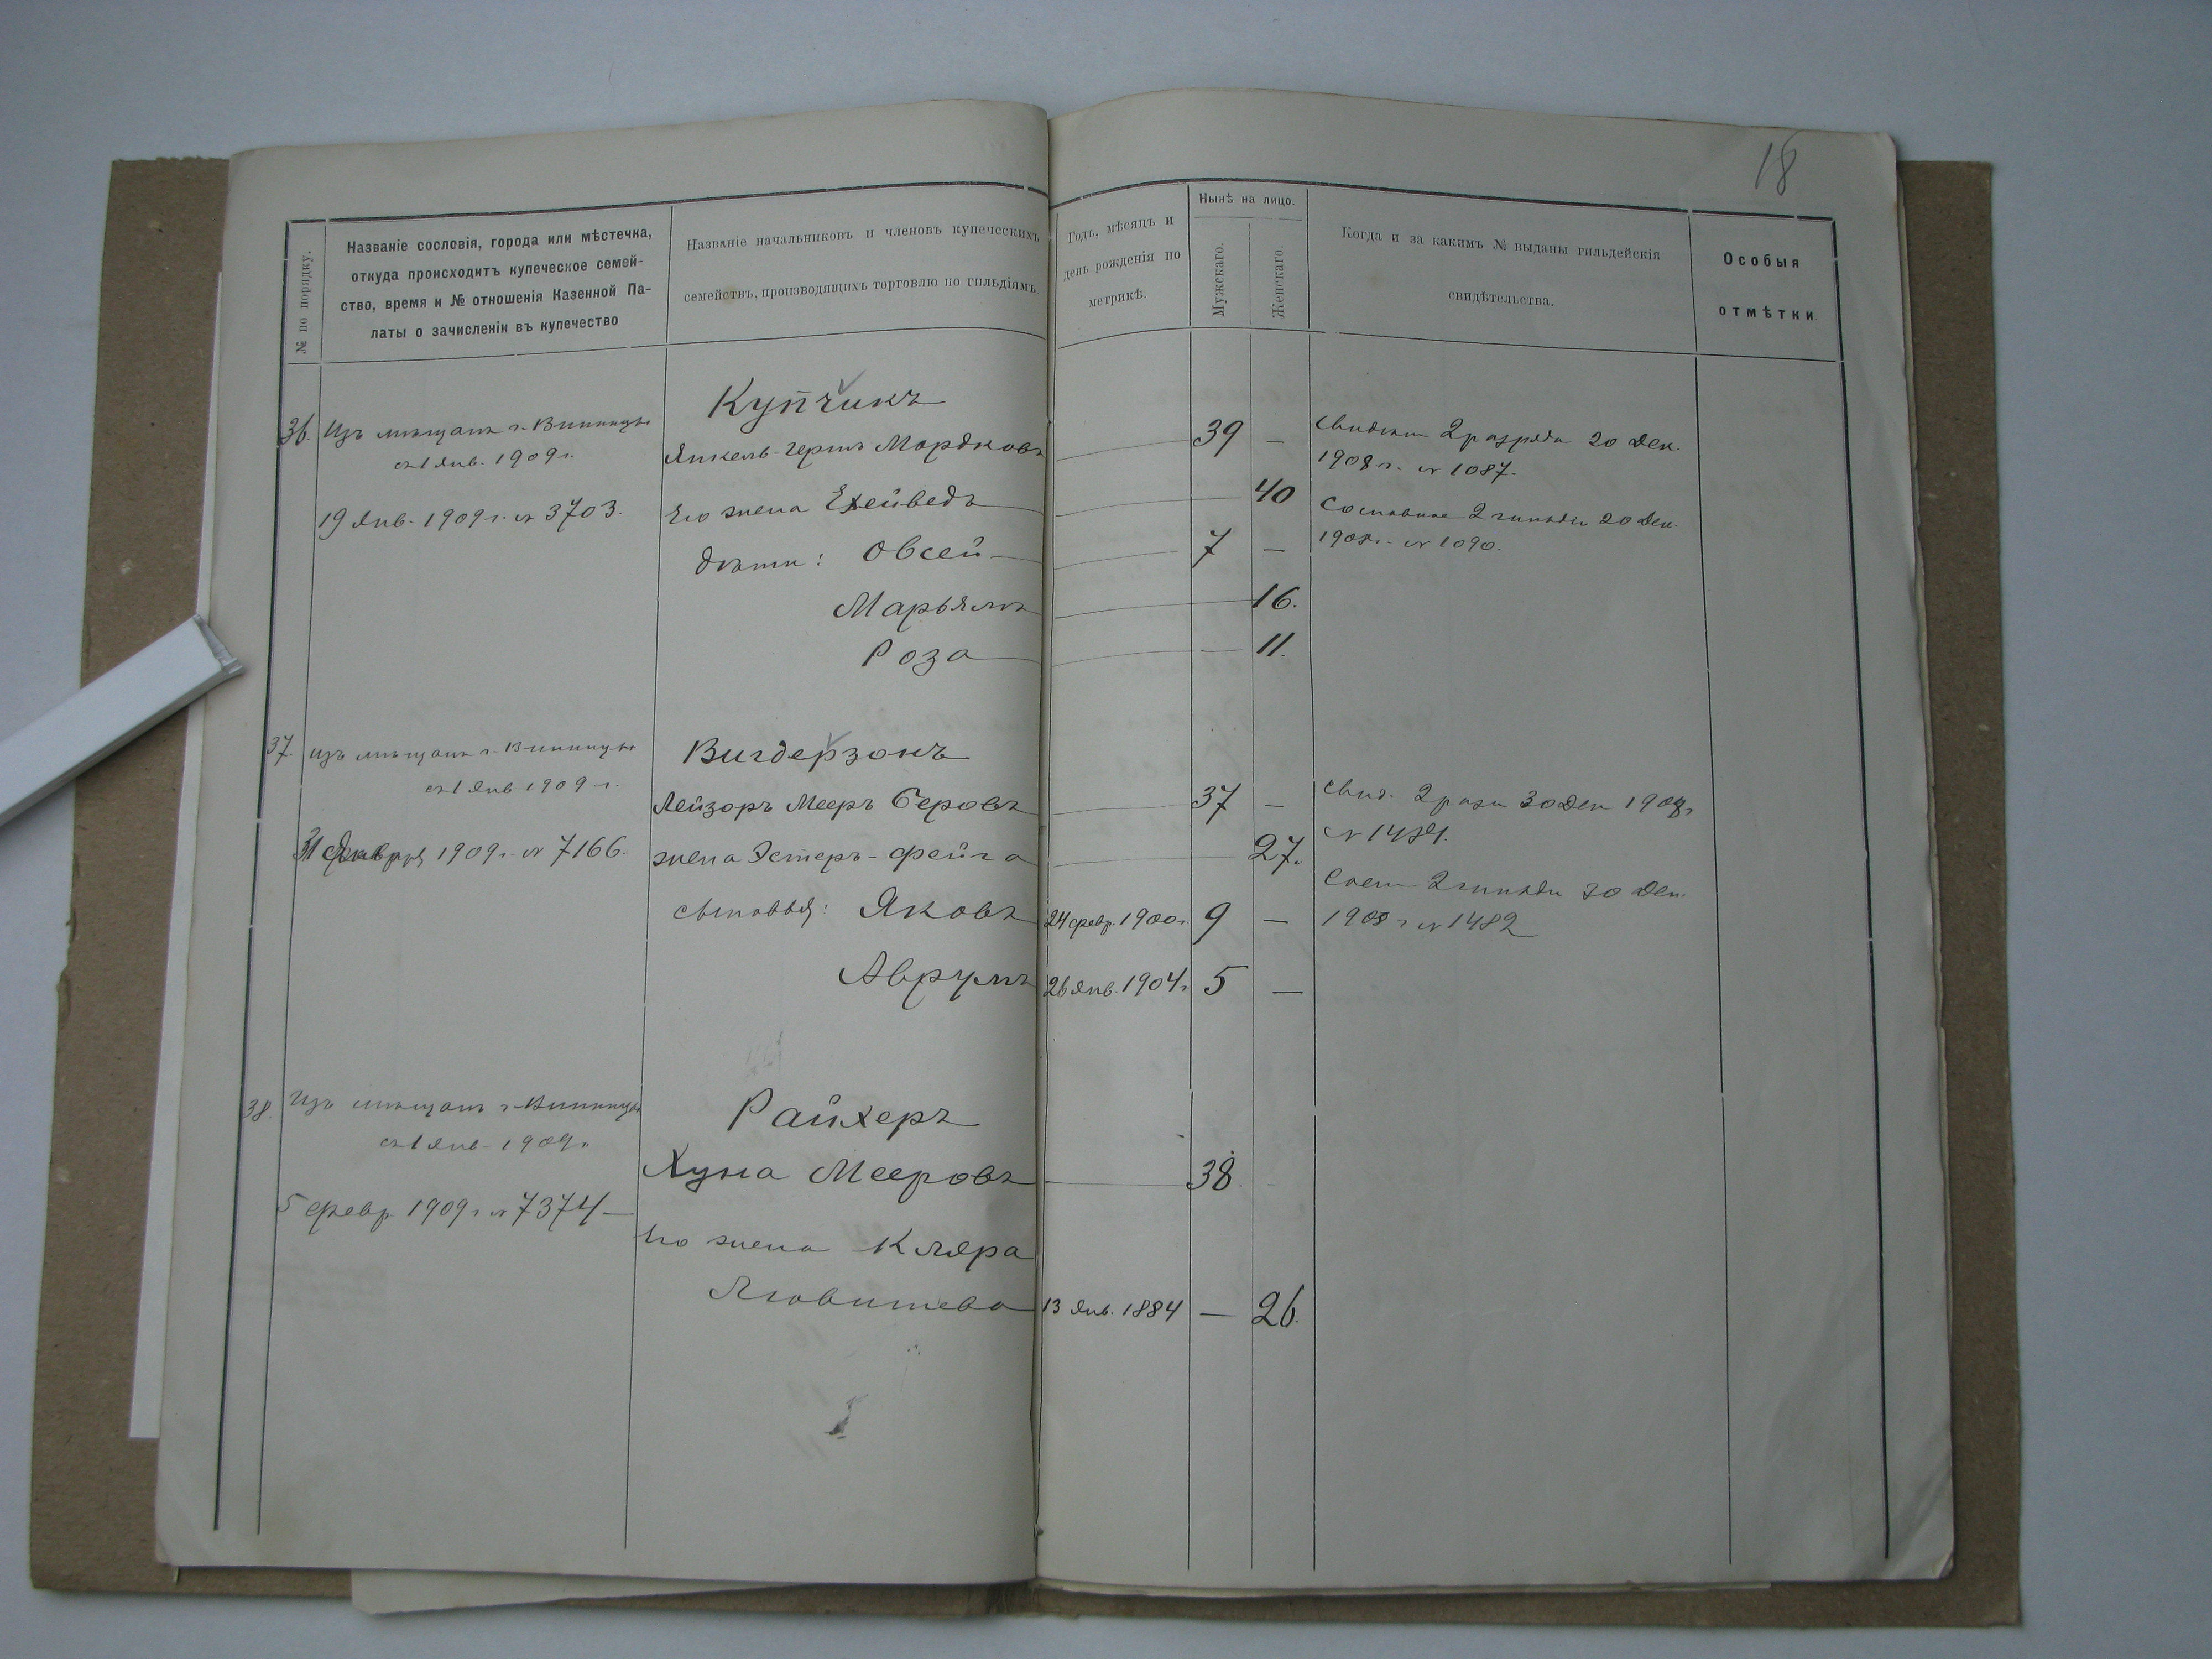 18
№ по порядку.
Названіе сословія, города или мѣстечка,
откуда происходитъ купеческое семей-
ство, время и № отношенія Казенной Па-
латы о зачисленіи въ купечество
Названіе начальниковъ и членовъ купеческихъ
семействъ, производящихъ торговлю по гильдіямъ
Годъ, мѣсяцъ и
день рожденія по
метрикѣ.
Нынѣ на лицо.
Мужскаго.
Женскаго.
Когда и за какимъ № выданы гильдейскія
свидѣтельства.
Особыя
отмѣтки
36. Изъ мѣщанъ г. Винницы
съ 1 Янв. 1909 г.
19 Янв. 1909 г. № 3703.
Купчикъ
Янкель-Гершъ Мордковъ — 39 —
Его жена Ехейведъ — 40
дѣти: Овсей — 7 —
Марьямъ — 16.
Роза — 11.
Свидѣт 2 разряда 20 Дек.
1908 г. № 1087.
Сословное 2 гильдіи 20 Дек.
1908 г. № 1090.
37. изъ мѣщанъ г. Винницы
съ 1 Янв. 1909 г.
31 Января 1909 г. № 7166.
Вигдерзонъ
Лейзоръ Мееръ Беровъ — 37 —
жена Эстеръ-Фейга — 27.
сыновья: Яковъ 24 февр. 1900 г. 9 —
Аврумъ 26 Янв. 1904 г. 5 —
Свид. 2 разр 30 Дек 1908 г
Сосл 2 гильди 30 Дек.
1908 г № 1482
38. Изъ мѣщанъ г. Винницы
съ 1 Янв. 1909 г.
5 февр. 1909 г. № 7374 —
Райхеръ
Хуна Мееровъ — 38 -
Его жена Кляра
13 Янв. 1884 — 26.